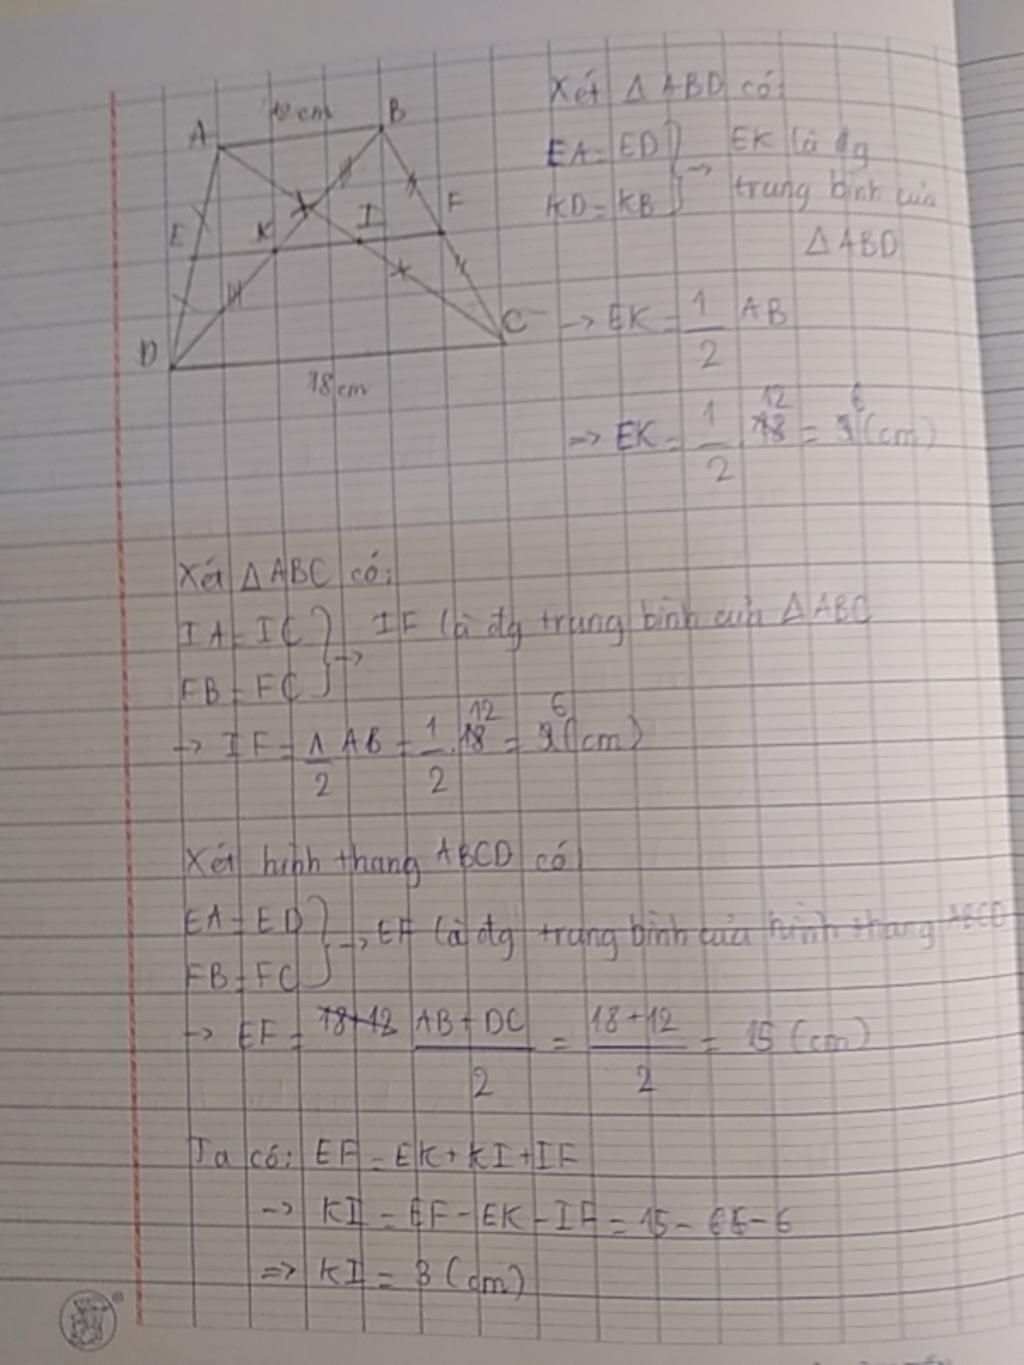 12 cm
A
B
E
K
I
F
D
C
18 cm
Xét Δ ABD có:
EA = ED } → EK là đg
KD = KB trung bình của
Δ ABD
→ EK = 1/2 AB
=> EK = 1/2 12 = 6 (cm)
Xét Δ ABC có:
IA = IC } → IF là đg trung bình của Δ ABC
FB = FC
→ IF = 1/2 AB = 1/2 . 12 = 6 (cm)
Xét hình thang ABCD có
EA = ED } → EF là đg trung bình của hình thang ABCD
FB = FC
→ EF = 18+12 AB + DC/2 = 18+12/2 = 15 (cm)
Ta có: EF = EK + KI + IF
→ KI = EF - EK - IF = 15 - 6 - 6
=> KI = 3 (cm)